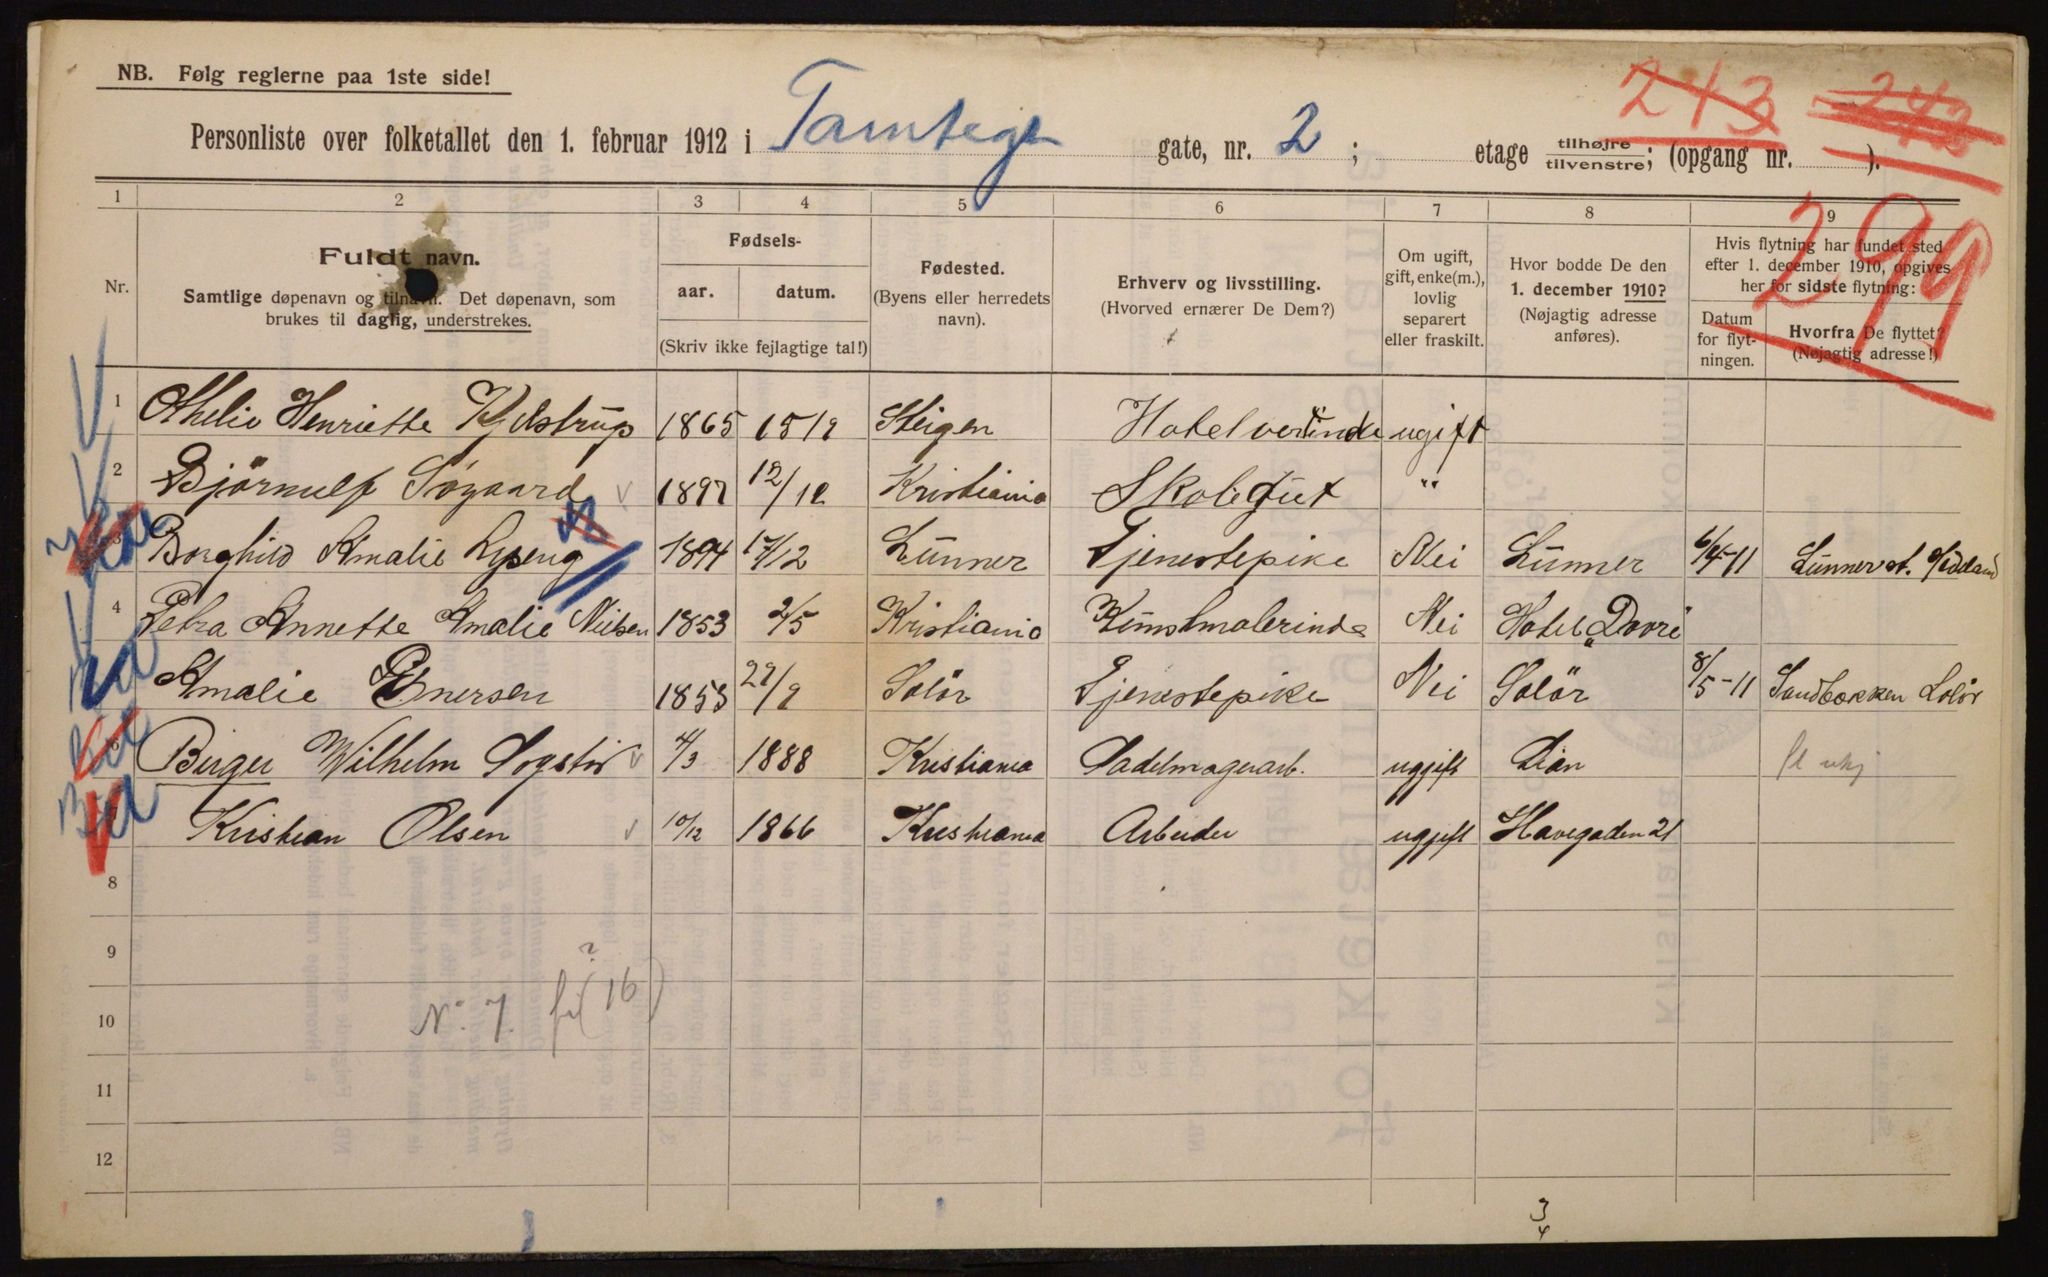 NB. Følg reglerne paa 1ste side!
243 243
Personliste over folketallet den 1. februar 1912 i Tomtegt gate, nr. 2 ; etage tilhøjre tilvenstre; (opgang nr. ).
299
1 2 3 4 5 6 7 8 9
Nr.
Fuldt navn.
Samtlige døpenavn og tilnavn. Det døpenavn, som
brukes til daglig, understrekes.
Fødsels-
aar. datum.
(Skriv ikke fejlagtige tal!)
Fødested.
(Byens eller herredets
navn).
Erhverv og livsstilling.
(Hvorved ernærer De Dem?)
Om ugift,
gift, enke(m.),
lovlig
separert
eller fraskilt.
Hvor bodde De den
1. december 1910?
(Nøjagtig adresse
anføres).
Hvis flytning har fundet sted
efter 1. december 1910, opgives
her for sidste flytning:
Datum
for flyt-
ningen.
Hvorfra De flyttet?
(Nøjagtig adresse!)
1 Othelie Henriette Kjelstrup 1865 15/9 Steigen Hotelværtinde ugift
2 Bjørnulf Søgaard 1897 12/12 Kristiania Skolegut "
3 Borghild Amalie 1894 17/12 Lunner Tjenestepike Nei Lunner 6/4-11 Lunner st.
4 Petra Annette Amalie Nielsen 1853 2/5 Kristiania Kunstmalerinde Nei Hotel Dovre
Amalie Enersen 1853 29/9 Solør Tjenestepike Nei Solør 8/5-11 Sandbakken Solør
6 Birger Wilhelm 4/3 1888 Kristiania Sadelmagerarb. ugift
7 Kristian Olsen 10/12 1866 Kristiania Arbeider ugift Havegaden 21
8
9
?
N. 7. (16)
10
11
12
3
4